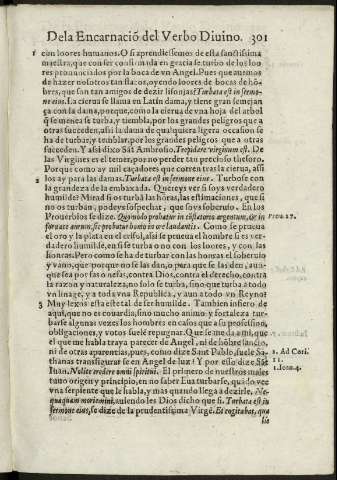 Dela Encarnació del Verbo Diuino. 301
1 con loores humanos. O si aprendiessemos de esta sanctissima
maestra, que con ser confirmada en gracia se turbo de los loo
res pronunciados por la boca de vn Angel. Pues que auemos
de hazer nosotros tan flacos, oyendo loores de bocas de hō
bres, que san tan amigos de dezir lisonjas? Turbata est in sermo
ne eius. La cierua se llama en Latin dama, y tiene gran semejan
ça con la dama, porque, como la cierua de vna hoja del arbol
q̃ se menea se turba, y tiembla, por los grandes peligros que a
otras suceden, assi la dama de qualquiera ligera occasion se
ha de turbar, y temblar, por los grandes peligros que a otras
suceden. Y assi dixo Sāt Ambrosio. Trepidare virginum est. De
las Virgines es el temer, por no perder tan precioso thesoro.
Porque como ay mil caçadores que corren tras la cierua, assi
los ay para las damas. Turbata est in sermone eius. Turbose con
2 la grandeza de la embaxada. Quereys ver si soys verdadero
humilde? Mirad si os turbā las hōras, las estimaciones, que si
no os turban, podeys sospechar, que soys soberuio. En los
Prouerbios se dize. Quomodo probatur in conflatorio argentum, & in
Prou. 27.
fornace aurum, sic probatur homo in ore laudantis. Como se prueua
el oro y la plata en el crisol, assi se prueua el hombre si es ver-
dadero humilde, en si se turba o no con los loores, y con las
honras. Pero como se ha de turbar con las honras el soberuio
y vano, que porque no se las dan, o para que se las den, aun-
que sea por fas o nefas, contra Dios, contra el derecho, contra
la razon y naturaleza, no solo se turba, sino que turba a todo
vn linage, y a toda vna Republica, y aun a todo vn Reyno?
Muy lexos esta este tal de ser humilde. Tambien infiero de
3 aqui, que no es couardia, sino mucho animo y fortaleza tur-
barse algunas vezes los hombres en casos que a su profession,
obligaciones, y votos suele repugnar. Que se me da a mi, que
el que me habla traya parecer de Angel, ni de hōbre sancto,
ni de otras aparencias, pues, como dize Sant Pablo, suele Sa-
2. Ad Cori.
thanas transfigurarse en Angel de luz? Y por esso dize Sāt
11.
Iuan. Nolite credere omni spiritui. El primero de nuestros males
1. Ioan. 4.
tuuo origen y principio, en no saber Eua turbarse, quādo vee
vna serpiente que le habla, y mas quando llega a dezirle. Ne-
quaquam moriemini, auiendo les Dios dicho que si. Turbata est in
sermone eius, se dize de la prudentissima Virgē. Et cogitabat, qua
lis